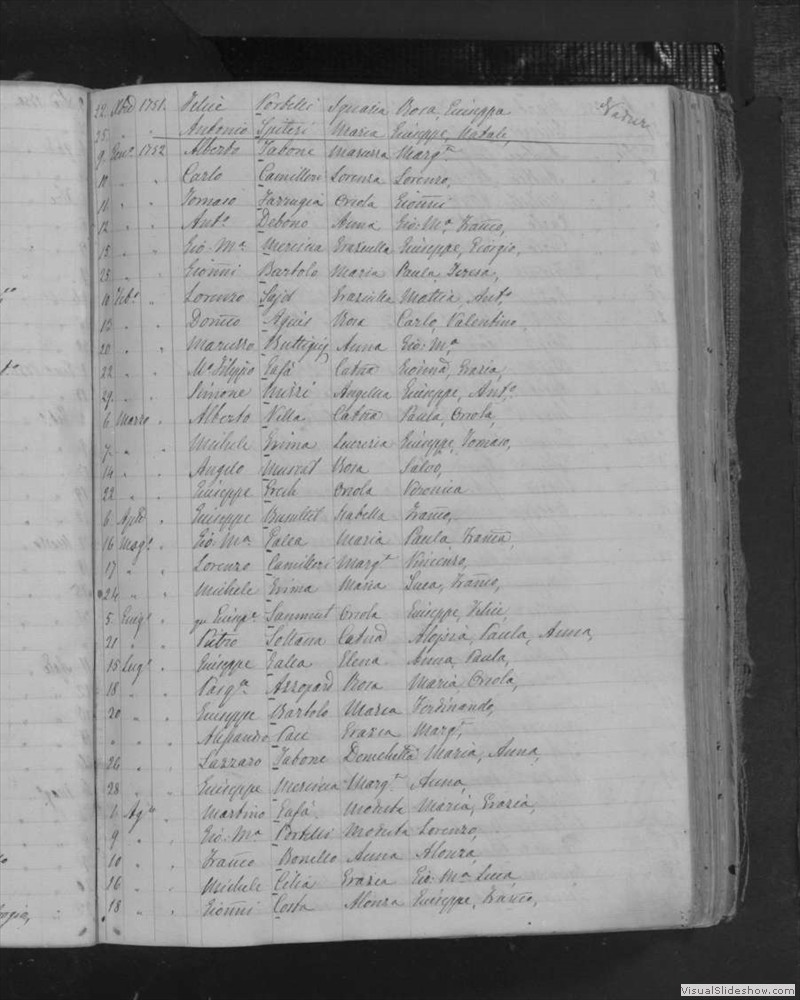 22 Xbre 1751. Felice Portelli Ignazia Rosa Giuseppa Nadur
25 " " Antonio Spiteri Maria Giuseppe, Natale,
9 Genº 1752 Alberto Tabone Maruzza Margta
10 " " Carlo Camilleri Lorenza Lorenzo,
11 " " Tomaso Farrugia Orsola Gionni
12 " " Antº Debono Anna Gio: Mª, Franco,
15 " " Gio: Mª Mercieca Graziulla Giuseppe, Giorgio,
25 " " Gionni Bartolo Maria Paula Teresa,
4 Febº " Lorenzo Said Graziulla Mattia, Antº
13 " " Domco Agius Rosa Carlo, Valentino,
20 " " Maruzzo Buttigieg Anna Gio: Mª,
22 " " Mº Filippo Cafà Catna Grazia,
29 " " Simone Mizzi Angelica Giuseppe, Antº,
6 Marzo " Alberto Vella Catna Paula, Orsola,
7 " " Michele Grima Lucrezia Giuseppe, Tomaso,
14 " " Angelo Muscat Rosa Salvo,
22 " " Giuseppe Grech Orsola Veronica
6 Aple " Giuseppe Busuttil Isabella Franco,
16 Magº " Gio: Mª Galea Maria Paula Franca,
17 " " Lorenzo Camilleri Margta Vincenzo,
24 " " Michele Grima Maria Luca, Franco,
5 Giugº " Giuspe Sammut Orsola Giuseppe, Felice,
21 " " Pietro Sultana Catna Aloisia, Paula, Anna,
15 Lugº " Giuseppe Galea Elena Anna, Paula,
18 " " Pasqle Azzopard Rosa Maria, Orsola,
20 " " Giuseppe Bartolo Maria Ferdinando,
" " " Pace Grazia Margta,
26 " " Lazzaro Tabone Demchetta Maria, Anna,
28 " " Giuseppe Mercieca Margta Anna,
1 Agº " Martino Cafà Modesta Maria, Grazia,
9 " " Gio: Mª Portelli Modesta Lorenzo,
10 " " Franco Bonello Anna Alonza,
16 " " Michele Cilia Grazia Gio: Mª Luca
18 " " Gionni Costa Alonza Giuseppe, Franco,
VisualSlideshow.com